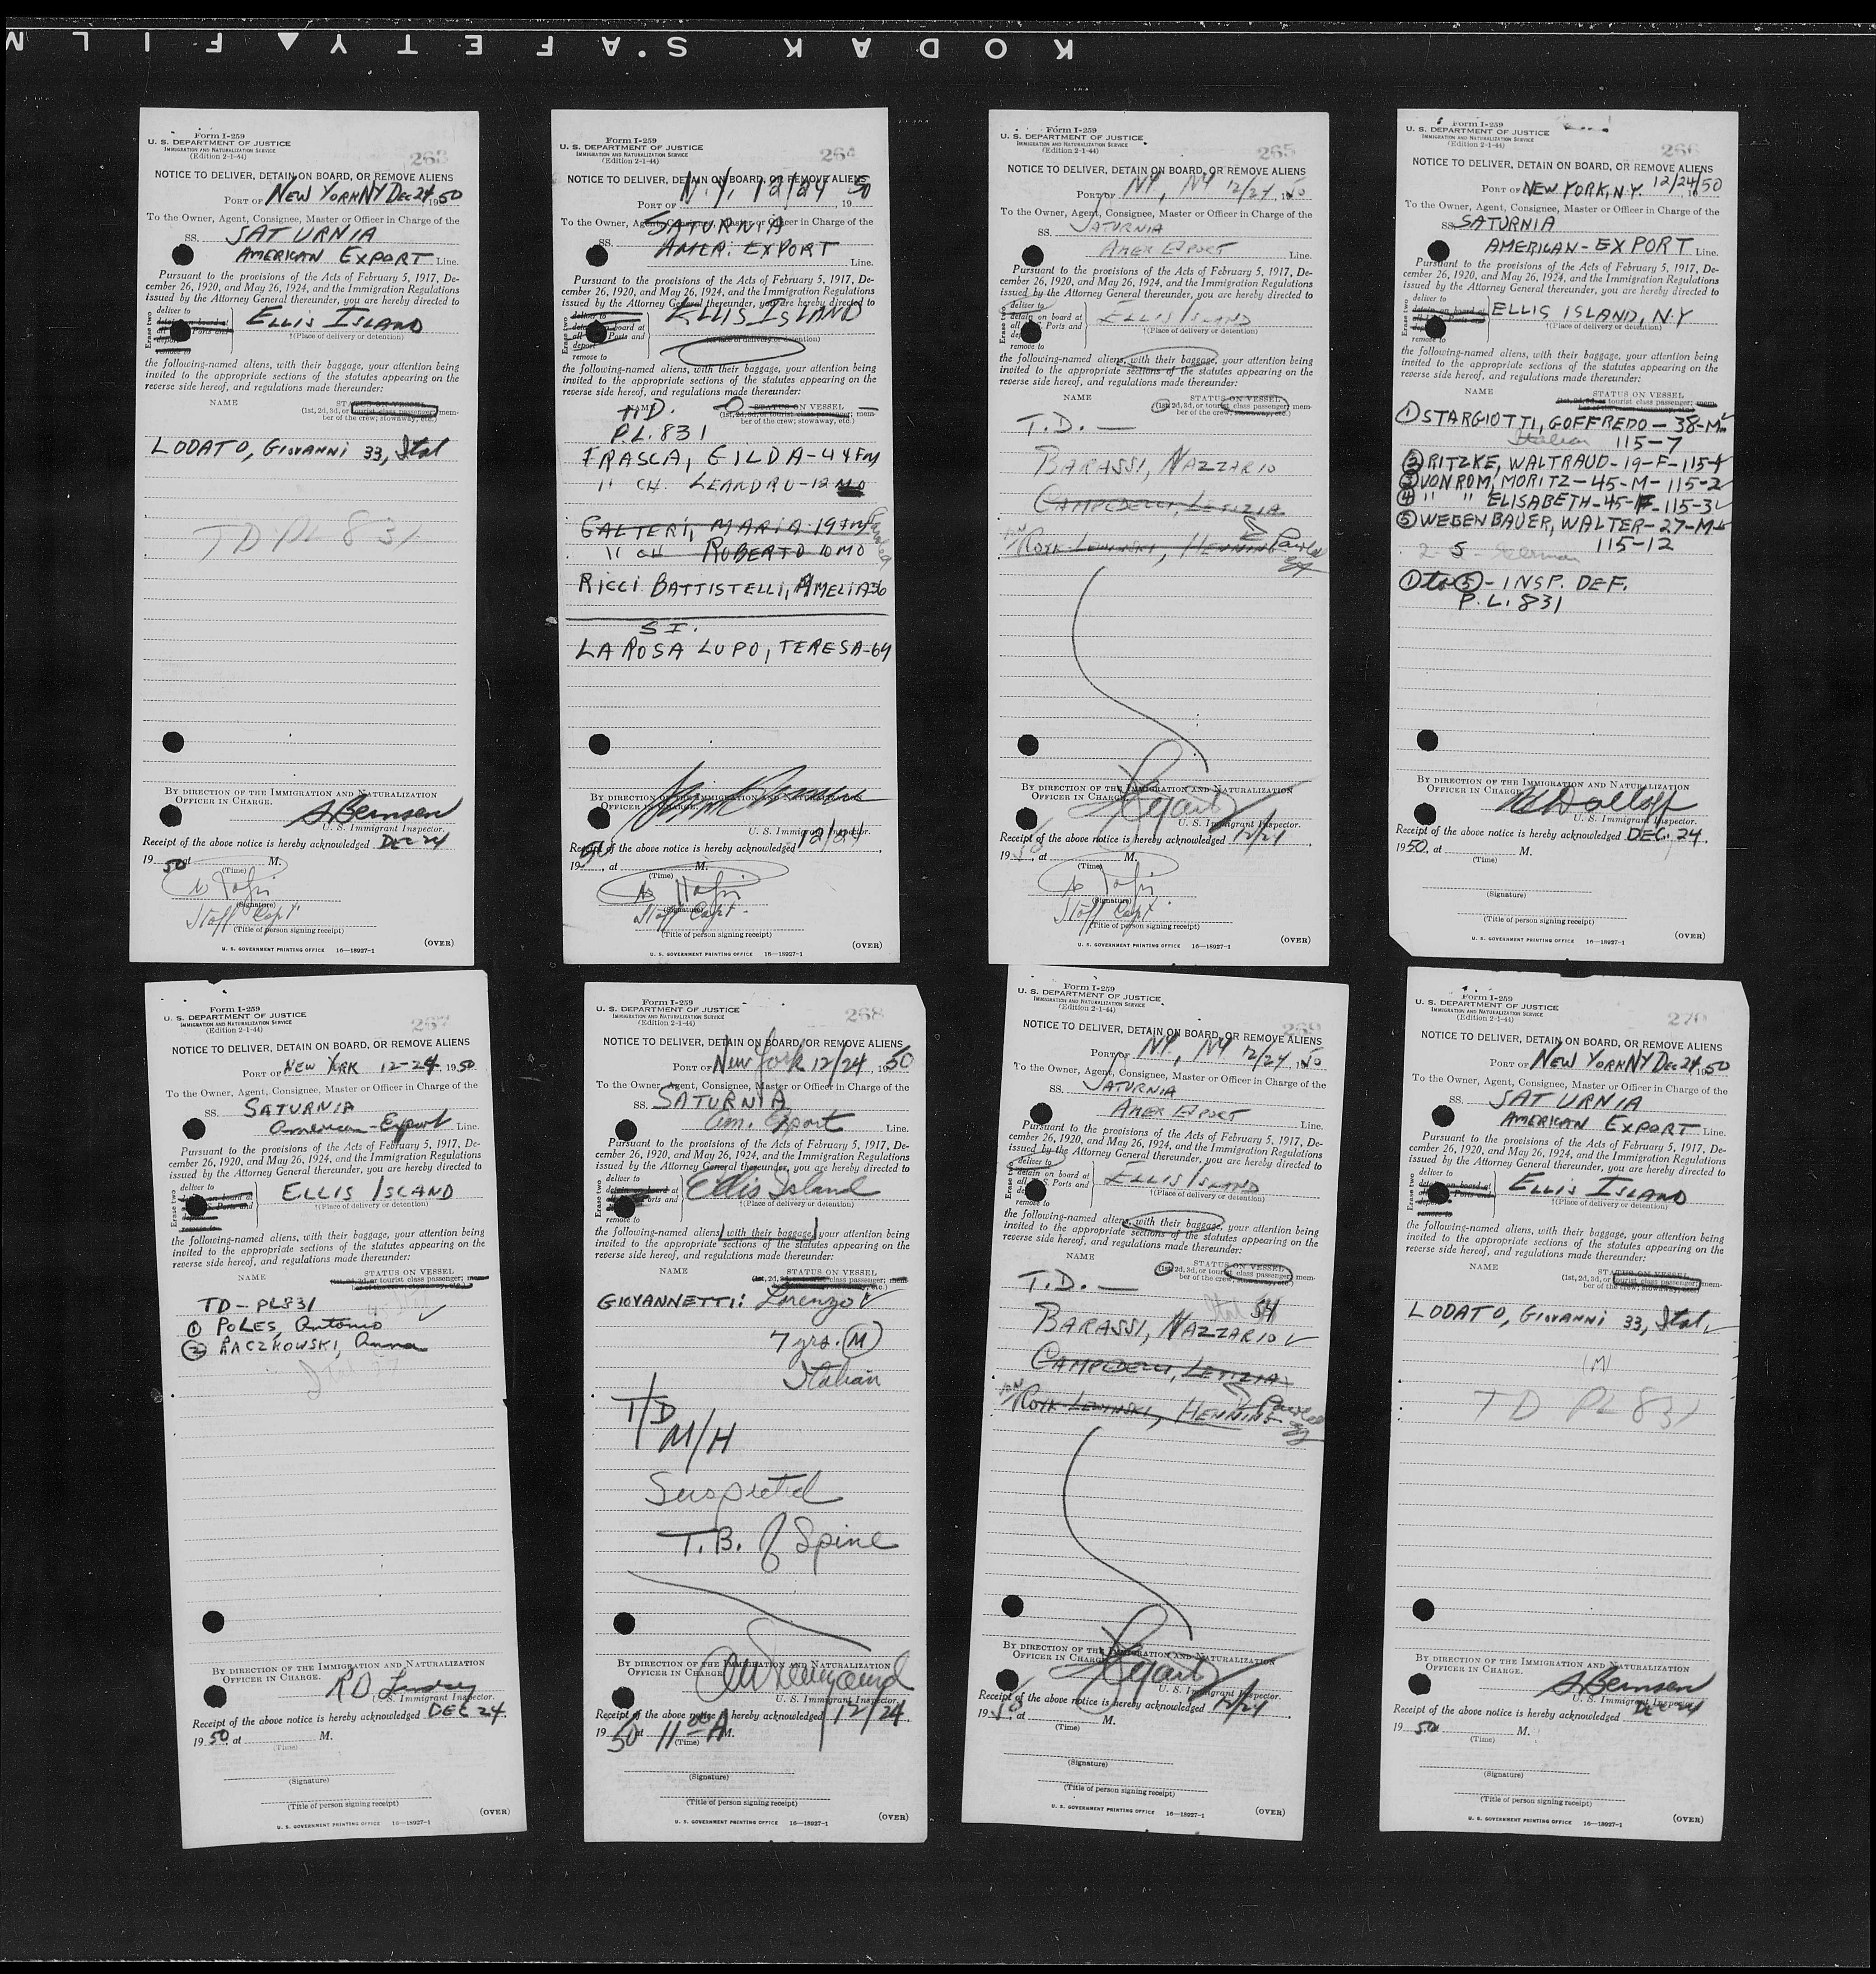 KODAK SAFETY FILM
Form I-259
U. S. DEPARTMENT OF JUSTICE
IMMIGRATION AND NATURALIZATION SERVICE
(Edition 2-1-44)
263
NOTICE TO DELIVER, DETAIN ON BOARD, OR REMOVE ALIENS
PORT OF NEW YORK NY DEC 24, 1950
To the Owner, Agent, Consignee, Master or Officer in Charge of the
SS. SATURNIA
AMERICAN EXPORT Line.
Pursuant to the provisions of the Acts of February 5, 1917, De-
cember 26, 1920, and May 26, 1924, and the Immigration Regulations
issued by the Attorney General thereunder, you are hereby directed to
Erase two
deliver to
detain on board at
Ports and
remove to
ELLIS ISLAND
†(Place of delivery or detention)
the following-named aliens, with their baggage, your attention being
invited to the appropriate sections of the statutes appearing on the
reverse side hereof, and regulations made thereunder:
NAME STATUS ON VESSEL
(1st, 2d, 3d, or tourist class passenger; mem-
ber of the crew; stowaway, etc.)
LODATO, GIOVANNI 33, Ital
TD PL 831
BY DIRECTION OF THE IMMIGRATION AND NATURALIZATION
OFFICER IN CHARGE.
S Bernsen
U. S. Immigrant Inspector.
Receipt of the above notice is hereby acknowledged DEC 24
1950 at M.
(Time)
(Signature)
Staff Capt.
(Title of person signing receipt)
(OVER)
U. S. GOVERNMENT PRINTING OFFICE 16—18927-1
Form I-259
U. S. DEPARTMENT OF JUSTICE
IMMIGRATION AND NATURALIZATION SERVICE
(Edition 2-1-44)
264
NOTICE TO DELIVER, DETAIN ON BOARD, OR REMOVE ALIENS
PORT OF N.Y. 12/24, 1950
To the Owner, Agent, Consignee, Master or Officer in Charge of the
SS. SATURNIA
AMER. EXPORT Line.
Pursuant to the provisions of the Acts of February 5, 1917, De-
cember 26, 1920, and May 26, 1924, and the Immigration Regulations
issued by the Attorney General thereunder, you are hereby directed to
Erase two
deliver to
detain on board at
all Ports and
deport
remove to
ELLIS ISLAND
†(Place of delivery or detention)
the following-named aliens, with their baggage, your attention being
invited to the appropriate sections of the statutes appearing on the
reverse side hereof, and regulations made thereunder:
NAME STATUS ON VESSEL
(1st, 2d, 3d, or tourist class passenger; mem-
ber of the crew; stowaway, etc.)
T.D.
P.L. 831
FRASCA, GILDA-44 Fm
" CH. LEANDRO-12 MO
GALTERI, MARIA 19 Fm
" CH ROBERTO 10 MO
Paroled
RICCI BATTISTELLI, AMELIA 36
S I.
LA ROSA LUPO, TERESA-64
BY DIRECTION OF THE IMMIGRATION AND NATURALIZATION
OFFICER IN CHARGE.
U. S. Immigrant Inspector.
Receipt of the above notice is hereby acknowledged 12/24
1950, at M.
(Time)
(Signature)
Staff Capt.
(Title of person signing receipt)
(OVER)
U. S. GOVERNMENT PRINTING OFFICE 16—18927-1
Form I-259
U. S. DEPARTMENT OF JUSTICE
IMMIGRATION AND NATURALIZATION SERVICE
(Edition 2-1-44)
265
NOTICE TO DELIVER, DETAIN ON BOARD, OR REMOVE ALIENS
PORT OF NY, NY 12/24, 1950
To the Owner, Agent, Consignee, Master or Officer in Charge of the
SS. SATURNIA
AMER EXPORT Line.
Pursuant to the provisions of the Acts of February 5, 1917, De-
cember 26, 1920, and May 26, 1924, and the Immigration Regulations
issued by the Attorney General thereunder, you are hereby directed to
Erase two
deliver to
detain on board at
all S. Ports and
deport
remove to
ELLIS ISLAND
†(Place of delivery or detention)
the following-named aliens, with their baggage, your attention being
invited to the appropriate sections of the statutes appearing on the
reverse side hereof, and regulations made thereunder:
NAME STATUS ON VESSEL
(1st, 2d, 3d, or tourist class passenger; mem-
ber of the crew; stowaway, etc.)
T.D. —
BARASSI, NAZZARIO
CAMPEDELLI, LETIZIA
LEWINSKI, HENNING Paroled
BY DIRECTION OF THE IMMIGRATION AND NATURALIZATION
OFFICER IN CHARGE.
U. S. Immigrant Inspector.
Receipt of the above notice is hereby acknowledged 12/24
1950, at M.
(Time)
(Signature)
Staff Capt.
(Title of person signing receipt)
(OVER)
U. S. GOVERNMENT PRINTING OFFICE 16—18927-1
Form I-259
U. S. DEPARTMENT OF JUSTICE
IMMIGRATION AND NATURALIZATION SERVICE
(Edition 2-1-44)
266
NOTICE TO DELIVER, DETAIN ON BOARD, OR REMOVE ALIENS
PORT OF NEW YORK, N.Y. 12/24/50
To the Owner, Agent, Consignee, Master or Officer in Charge of the
SS. SATURNIA
AMERICAN-EXPORT Line.
Pursuant to the provisions of the Acts of February 5, 1917, De-
cember 26, 1920, and May 26, 1924, and the Immigration Regulations
issued by the Attorney General thereunder, you are hereby directed to
Erase two
deliver to
detain on board at
remove to
ELLIS ISLAND, N.Y
†(Place of delivery or detention)
the following-named aliens, with their baggage, your attention being
invited to the appropriate sections of the statutes appearing on the
reverse side hereof, and regulations made thereunder:
NAME STATUS ON VESSEL
(1st, 2d, 3d, or tourist class passenger; mem-
ber of the crew; stowaway, etc.)
① STARGIOTTI, GOFFREDO-38-M
Italian 115-7
② RITZKE, WALTRAUD-19-F-115-
③ VON ROM, MORITZ-45-M-115-2
④ " " ELISABETH-45-F-115-3
⑤ WEBENBAUER, WALTER-27-M
115-12
2-5 German
① to ⑤-INSP. DEF.
P.L. 831
BY DIRECTION OF THE IMMIGRATION AND NATURALIZATION
OFFICER IN CHARGE.
U. S. Immigrant Inspector.
Receipt of the above notice is hereby acknowledged DEC. 24,
1950, at M.
(Time)
(Signature)
(Title of person signing receipt)
(OVER)
U. S. GOVERNMENT PRINTING OFFICE 16—18927-1
Form I-259
U. S. DEPARTMENT OF JUSTICE
IMMIGRATION AND NATURALIZATION SERVICE
(Edition 2-1-44)
267
NOTICE TO DELIVER, DETAIN ON BOARD, OR REMOVE ALIENS
PORT OF NEW YORK 12-24, 1950
To the Owner, Agent, Consignee, Master or Officer in Charge of the
SS. SATURNIA
American-Export Line.
Pursuant to the provisions of the Acts of February 5, 1917, De-
cember 26, 1920, and May 26, 1924, and the Immigration Regulations
issued by the Attorney General thereunder, you are hereby directed to
Erase two
deliver to
detain on board at
Ports and
ELLIS ISLAND
†(Place of delivery or detention)
the following-named aliens, with their baggage, your attention being
invited to the appropriate sections of the statutes appearing on the
reverse side hereof, and regulations made thereunder:
NAME STATUS ON VESSEL
(1st, 2d, 3d, or tourist class passenger; mem-
TD-PL831
① POLES, Antonio
② RACZKOWSKI, Anna
BY DIRECTION OF THE IMMIGRATION AND NATURALIZATION
OFFICER IN CHARGE.
U. S. Immigrant Inspector.
Receipt of the above notice is hereby acknowledged DEC 24,
1950, at M.
(Time)
(Signature)
(Title of person signing receipt)
(OVER)
U. S. GOVERNMENT PRINTING OFFICE 16—18927-1
Form I-259
U. S. DEPARTMENT OF JUSTICE
IMMIGRATION AND NATURALIZATION SERVICE
(Edition 2-1-44)
268
NOTICE TO DELIVER, DETAIN ON BOARD, OR REMOVE ALIENS
PORT OF New York 12/24, 1950
To the Owner, Agent, Consignee, Master or Officer in Charge of the
SS. SATURNIA
Am. Export Line.
Pursuant to the provisions of the Acts of February 5, 1917, De-
cember 26, 1920, and May 26, 1924, and the Immigration Regulations
issued by the Attorney General thereunder, you are hereby directed to
Erase two
deliver to
detain on board at
Ports and
remove to
Ellis Island
†(Place of delivery or detention)
the following-named aliens, with their baggage, your attention being
invited to the appropriate sections of the statutes appearing on the
reverse side hereof, and regulations made thereunder:
NAME STATUS ON VESSEL
(1st, 2d, 3d, or tourist class passenger; mem-
ber of the crew; stowaway, etc.)
GIOVANNETTI: Lorenzo
7 yrs. (M)
Italian
T/D
M/H
Suspected
T.B. of Spine
BY DIRECTION OF THE IMMIGRATION AND NATURALIZATION
OFFICER IN CHARGE.
U. S. Immigrant Inspector.
Receipt of the above notice is hereby acknowledged 12/24,
1950 at 11 00 A M.
(Time)
(Signature)
(Title of person signing receipt)
(OVER)
U. S. GOVERNMENT PRINTING OFFICE 16—18927-1
Form I-259
U. S. DEPARTMENT OF JUSTICE
IMMIGRATION AND NATURALIZATION SERVICE
(Edition 2-1-44)
269
NOTICE TO DELIVER, DETAIN ON BOARD, OR REMOVE ALIENS
PORT OF NY, NY 12/24, 1950
To the Owner, Agent, Consignee, Master or Officer in Charge of the
SS. SATURNIA
AMER EXPORT Line.
Pursuant to the provisions of the Acts of February 5, 1917, De-
cember 26, 1920, and May 26, 1924, and the Immigration Regulations
issued by the Attorney General thereunder, you are hereby directed to
Erase two
deliver to
detain on board at
all S. Ports and
remove to
ELLIS ISLAND
†(Place of delivery or detention)
the following-named aliens, with their baggage, your attention being
invited to the appropriate sections of the statutes appearing on the
reverse side hereof, and regulations made thereunder:
NAME STATUS ON VESSEL
(1st, 2d, 3d, or tourist class passenger; mem-
ber of the crew; stowaway, etc.)
T.D. —
Ital 54
BARASSI, NAZZARIO
CAMPEDELLI, LETIZIA
LEWINSKI, HENNING Paroled
BY DIRECTION OF THE IMMIGRATION AND NATURALIZATION
OFFICER IN CHARGE.
U. S. Immigrant Inspector.
Receipt of the above notice is hereby acknowledged 12/24
1950, at M.
(Time)
(Signature)
(Title of person signing receipt)
(OVER)
U. S. GOVERNMENT PRINTING OFFICE 16—18927-1
Form I-259
U. S. DEPARTMENT OF JUSTICE
IMMIGRATION AND NATURALIZATION SERVICE
(Edition 2-1-44)
270
NOTICE TO DELIVER, DETAIN ON BOARD, OR REMOVE ALIENS
PORT OF NEW YORK NY DEC 24, 1950
To the Owner, Agent, Consignee, Master or Officer in Charge of the
SS. SATURNIA
AMERICAN EXPORT Line.
Pursuant to the provisions of the Acts of February 5, 1917, De-
cember 26, 1920, and May 26, 1924, and the Immigration Regulations
issued by the Attorney General thereunder, you are hereby directed to
Erase two
deliver to
detain on board at
Ports and
remove to
ELLIS ISLAND
†(Place of delivery or detention)
the following-named aliens, with their baggage, your attention being
invited to the appropriate sections of the statutes appearing on the
reverse side hereof, and regulations made thereunder:
NAME STATUS ON VESSEL
(1st, 2d, 3d, or tourist class passenger; mem-
ber of the crew; stowaway, etc.)
LODATO, GIOVANNI 33, Ital
(M)
TD PL 831
BY DIRECTION OF THE IMMIGRATION AND NATURALIZATION
OFFICER IN CHARGE.
S Bernsen
U. S. Immigrant Inspector.
Receipt of the above notice is hereby acknowledged DEC 24
1950 at M.
(Time)
(Signature)
(Title of person signing receipt)
(OVER)
U. S. GOVERNMENT PRINTING OFFICE 16—18927-1